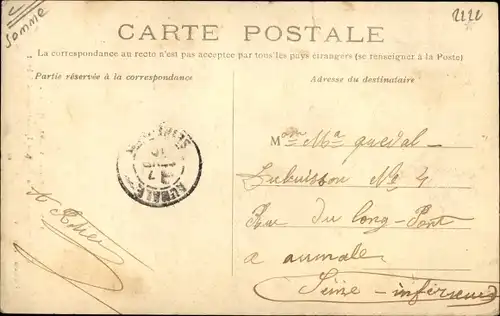 Somme
2220
CARTE POSTALE
La correspondance au recto n'est pas acceptée par tous les pays étrangers (se renseigner à la Poste)
Partie réservée à la correspondance
Adresse du destinataire
Mon Ma queval -
Lubuisson No 4
Rue du long-Pont
a aumale
Seine-inférieure
AUMALE